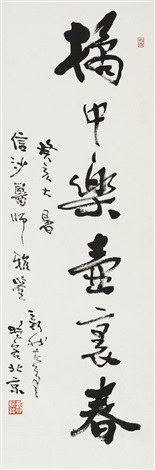 橘中樂壺裏春
癸亥大暑
信沙醫師雅鑒
北京